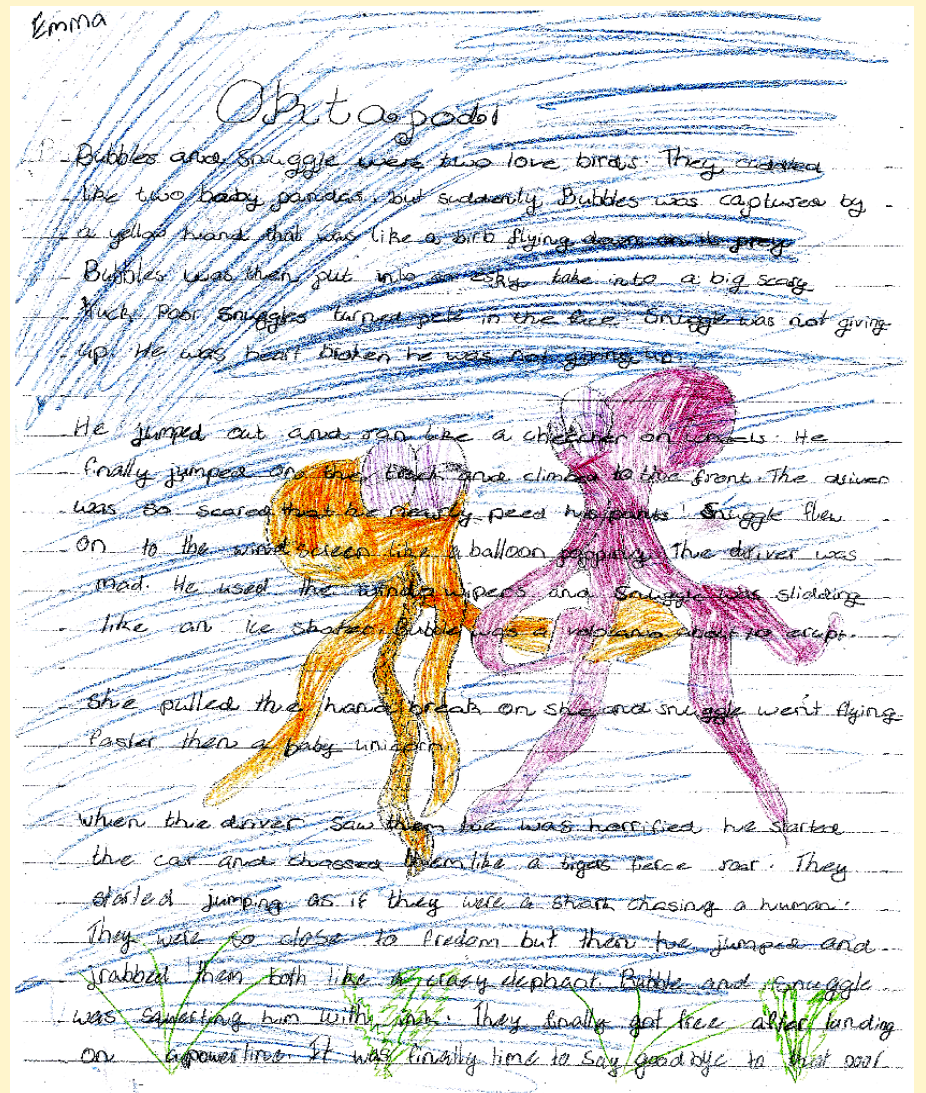 Emma
Oktapodi
Bubbles and Snuggle were two love birds. They cuddled
like two baby pandas but suddenly Bubbles was captured by
a yellow hand that was like a birb flying down on its prey
Bubbles was then put into an esky take into a big scary
truck. Poor Snuggles turned pele in the face. Snuggle was not giving
up. He was heart broken he was not giving up.
He jumped out and ran like a cheeter on wheels. He
finally jumped on the truck and climbed to the front. The driver
was so scared that he nearly peed his pants! Snuggle flew
on to the windscreen like a balloon popping. The driver was
mad. He used the window wipers and Snuggle was slidding
like an ice skater. Bubble was a volcano about to erupt.
She pulled the hand break on she and snuggle went flying
faster then a baby unicorn.
when the driver saw them he was horrified he started
the car and chassed them like a tigers fierce roar. They
started jumping as if they were a shark chasing a human.
They were so close to fredom but then he jumped and
grabbed them both like a crazy elephant. Bubble and Snuggle
was sqwerting him with ink. They finally got free after landing
on a powerline. It was finally time to say goodbye to that